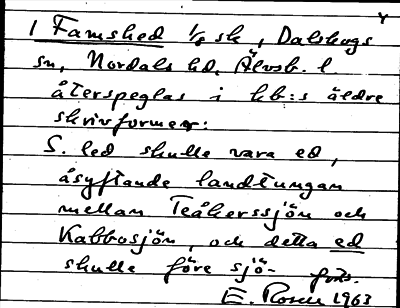 Y
1 Famshed 1/8 sk, Dalskogs
sn, Nordals hd, Älvsb. l
återspeglas i kb:s äldre
skrivformer:
S. led skulle vara ed,
åsyftande landtungan
mellan Teåkerssjön och
Kabbosjön, och detta ed
skulle före sjö- forts.
E. Rosell 1963